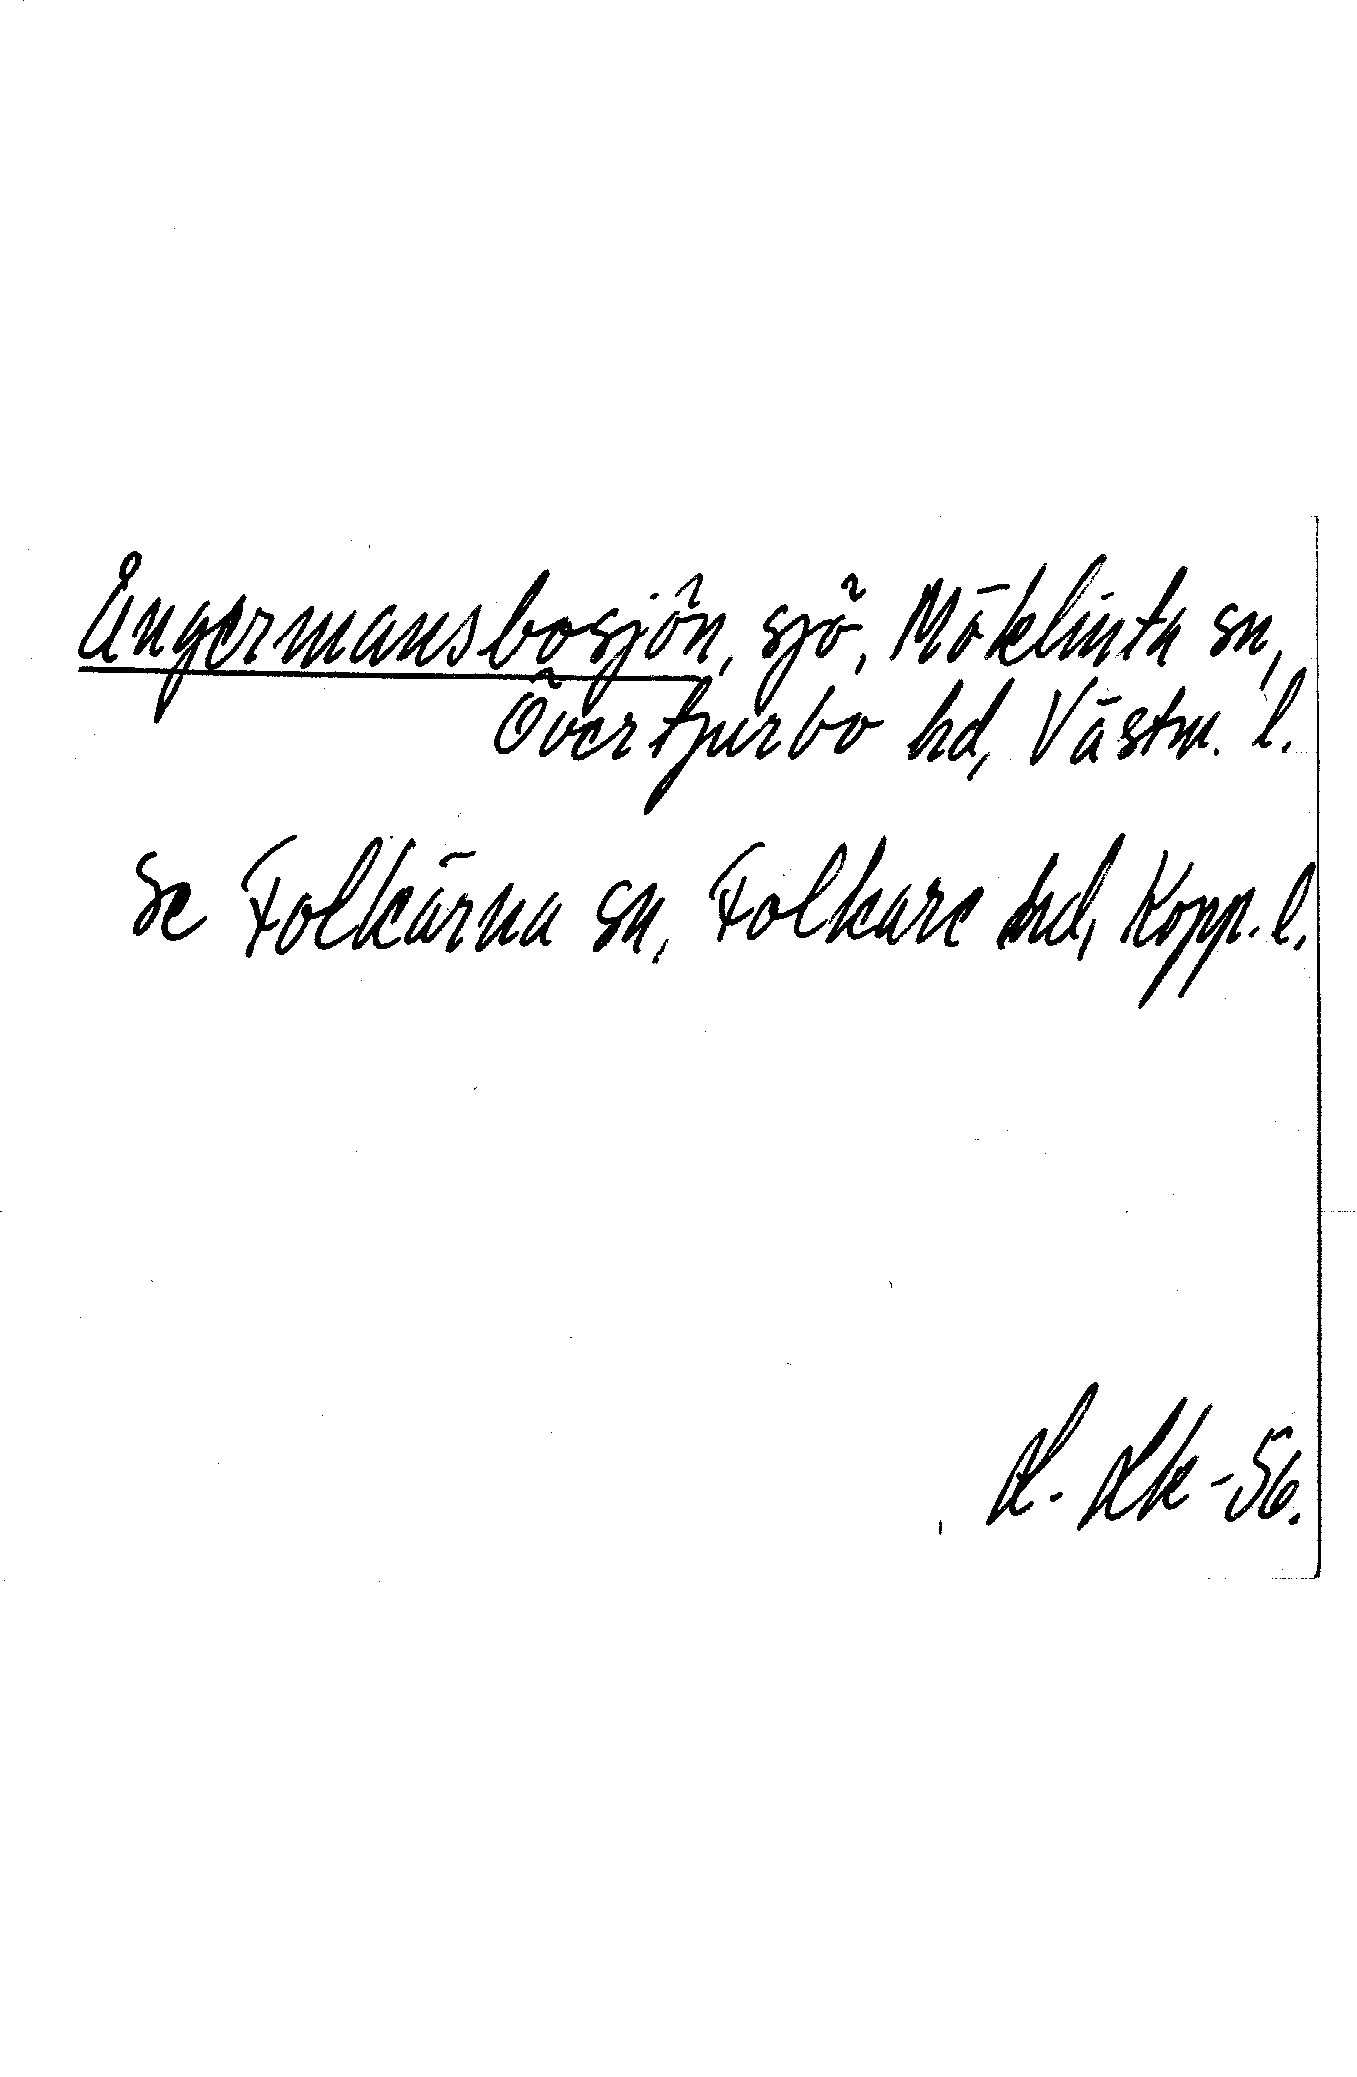 Ångermansbosjön, sjö, Möklinta sn,
Övertjurbo hd, Västm. l.
Se Folkärna sn, Folkare hd, Kopp. l.
-56.